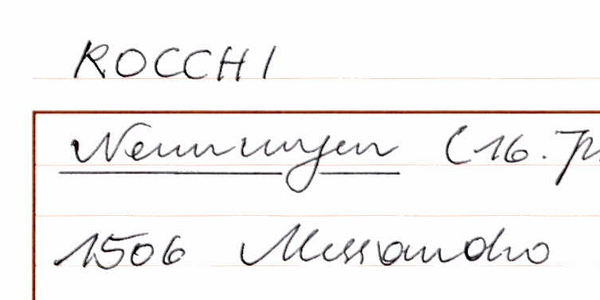 ROCCHI
Nennungen (16. Jh
1506 Alessandro